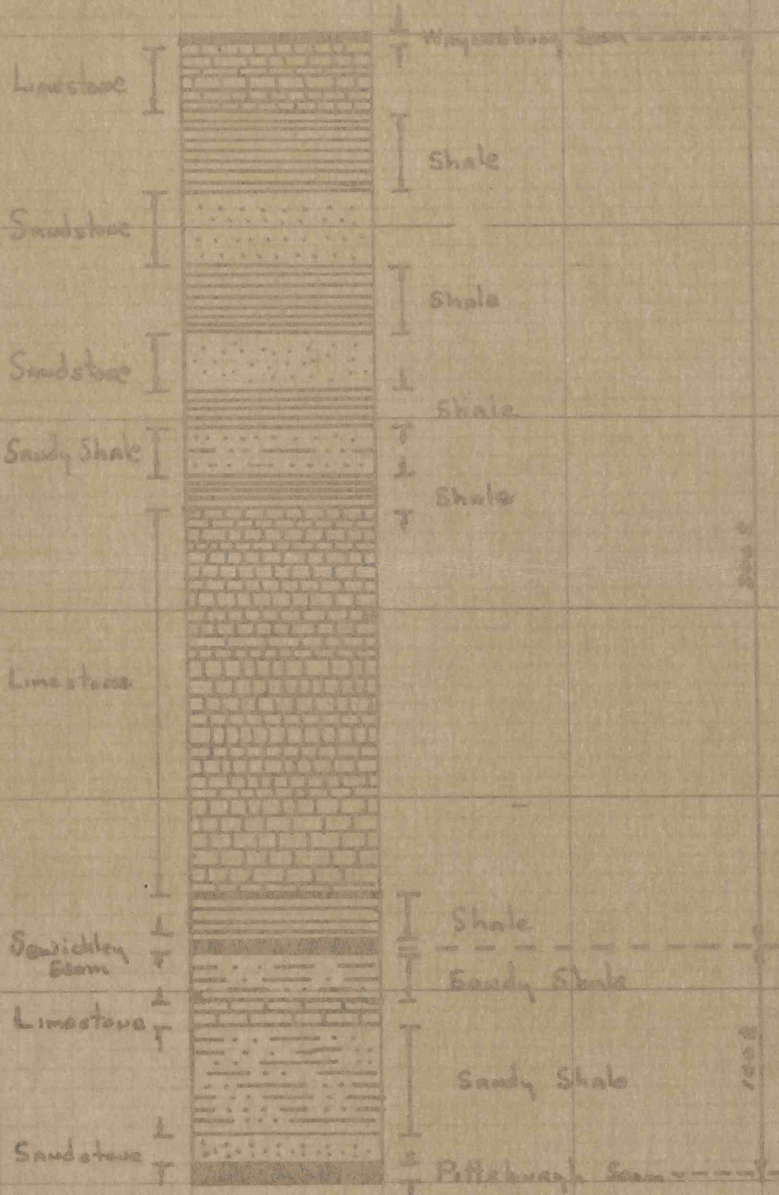 Waynesburg Seam
Limestone
Shale
Sandstone
Shale
Sandstone
Shale
Sandy Shale
Shale
Limestone
Shale
Sewickley
Seam
Sandy Shale
Limestone
Sandy Shale
Sandstone
Pittsburgh Seam